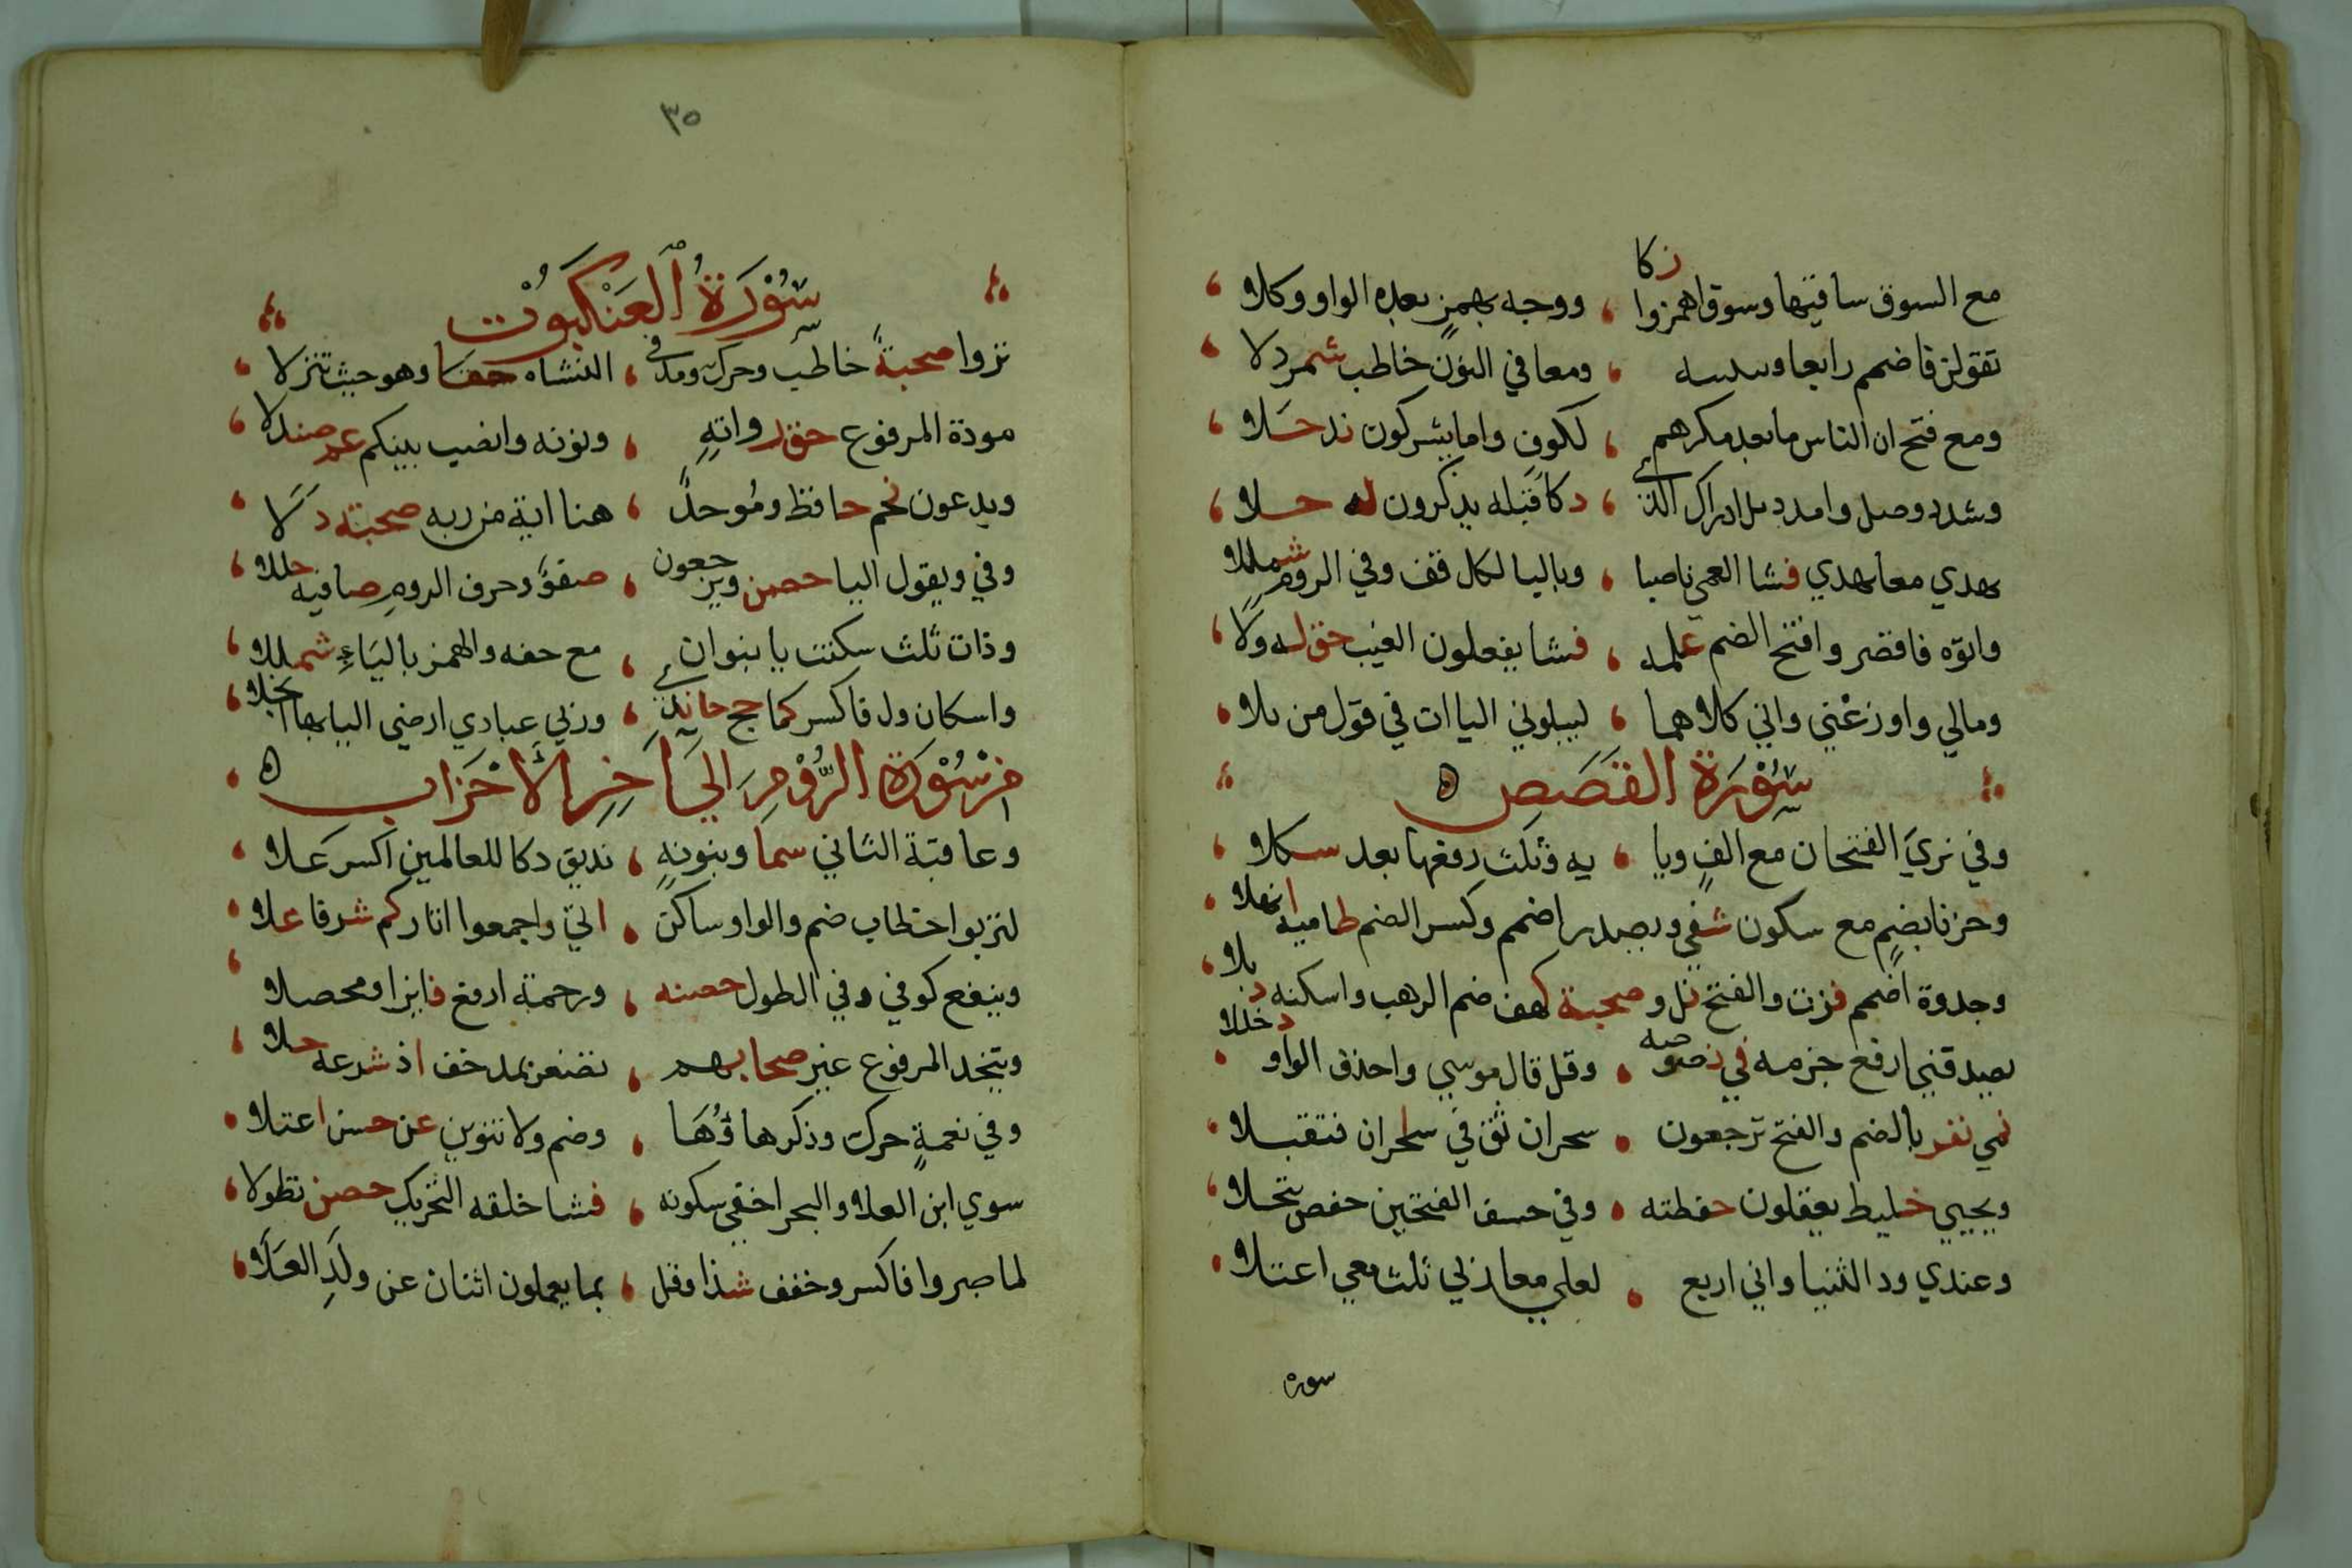 مع السوق ساقيها وسوق اهمزوا زكا ، ووجه بهمز بعده الواو وكلا
تقولن فاضمم رابعا ونبيتنه ، ومعا في النون خاطب شمردلا
ومع فتح ان الناس ما بعد مكرهم ، لكوف واما يشركون ند حلا
وشدد وصل وامدد بل ادراك الذي ، ذكا قبله يذكرون له حلا
بهدي معا تهدي فشا العمي ناصبا ، وباليا لكل قف وفي الروم شمللا
واتوه فاقصر وافتح الضم علمه ، فشا يفعلون الغيب حق له ولا
ومالي واوزعني واني كلاهما ، ليبلوني الياات في قول من بلا
سُوْرَة القَصَصِ
وفي نري الفتحان مع الف ويا ، يه وثلث رفعها بعد سكلا
وحزنا بضم مع سكون شفي ويصدر اضمم وكسر الضم ظاميه انهلا
وجذوة اضمم فزت والفتح نل وصحبة كهف ضم الرهب واسكنه ذبلا
يصدقني ارفع جزمه في نصوصه ، وقل قال موسي واحذف الواو دخللا
نمي نفر بالضم والفتح ترجعون ، سحران ثق في سلحران فتقبلا
ويجبي خليط يعقلون حفظته ، وفي خسف الفتحين حفص تنخلا
وعندي ود الثنيا واني اربع ، لعلي معا ربي ثلث معي اعتلا
سوره
٣٥
سُوْرَةُ العَنْكَبُوْت
تروا صحبةٌ خاطب وحرك ومد في ، النشاه حقا وهو حيث تنزلا
مودة المرفوع حق رواته ، ونونه وانصب بينكم عم صندلا
ويدعون نجم حافظ وموحد ، هنا اية من ربه صحبته دلا
وفي ويقول اليا حصن ويرجعون ، صفو وحرف الروم صافيه حللا
وذات ثلث سكنت يا نبوان ، مع حفه والهمز بالياء شمللا
واسكان ول فاكسر كما حج جاندي ، وربي عبادي ارضي اليا بها انجلا
من سُوْرَة الرُّوْمِ اِلَى اَخِرِ الأَحْزَاب
وعاقبة الثاني سما وبنونه ، نذيق ذكا للعالمين اكسر علا
لتربوا خطاب ضم والواو ساكن ، اتي واجمعوا اثار كم شرفا علا
وينفع كوفي وفي الطول حصنه ، ورحمة ارفع فايزا ومحصلا
ويتخذ المرفوع غير صحابهم ، تصعر بمد خف اذ شرعه حلا
وفي نعمة حرك وذكر هاؤها ، وضم ولا تنوين عن حسن اعتلا
سوي ابن العلا والبحر اخفي سكونه ، فشا خلقه التحريك حصن تطولا
لما صبروا فاكسر وخفف شذا وقل ، بما يعملون اثنان عن ولد العلا